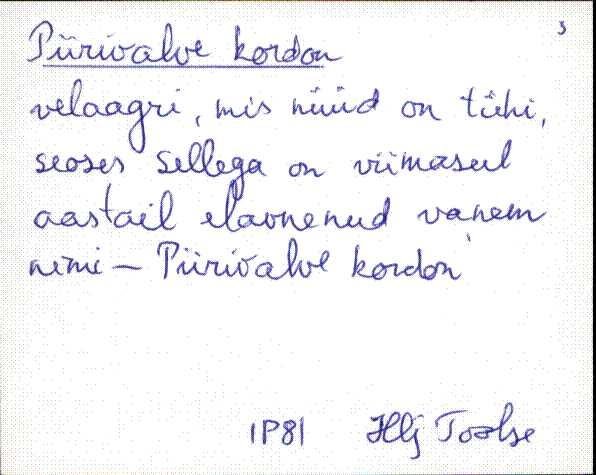 3
Piirivalve kordon
velaagri, mis nüüd on tühi,
seoses sellega on viimaseil
aastail elavnenud vanem
nimi — Piirivalve kordon
1981 Hlj